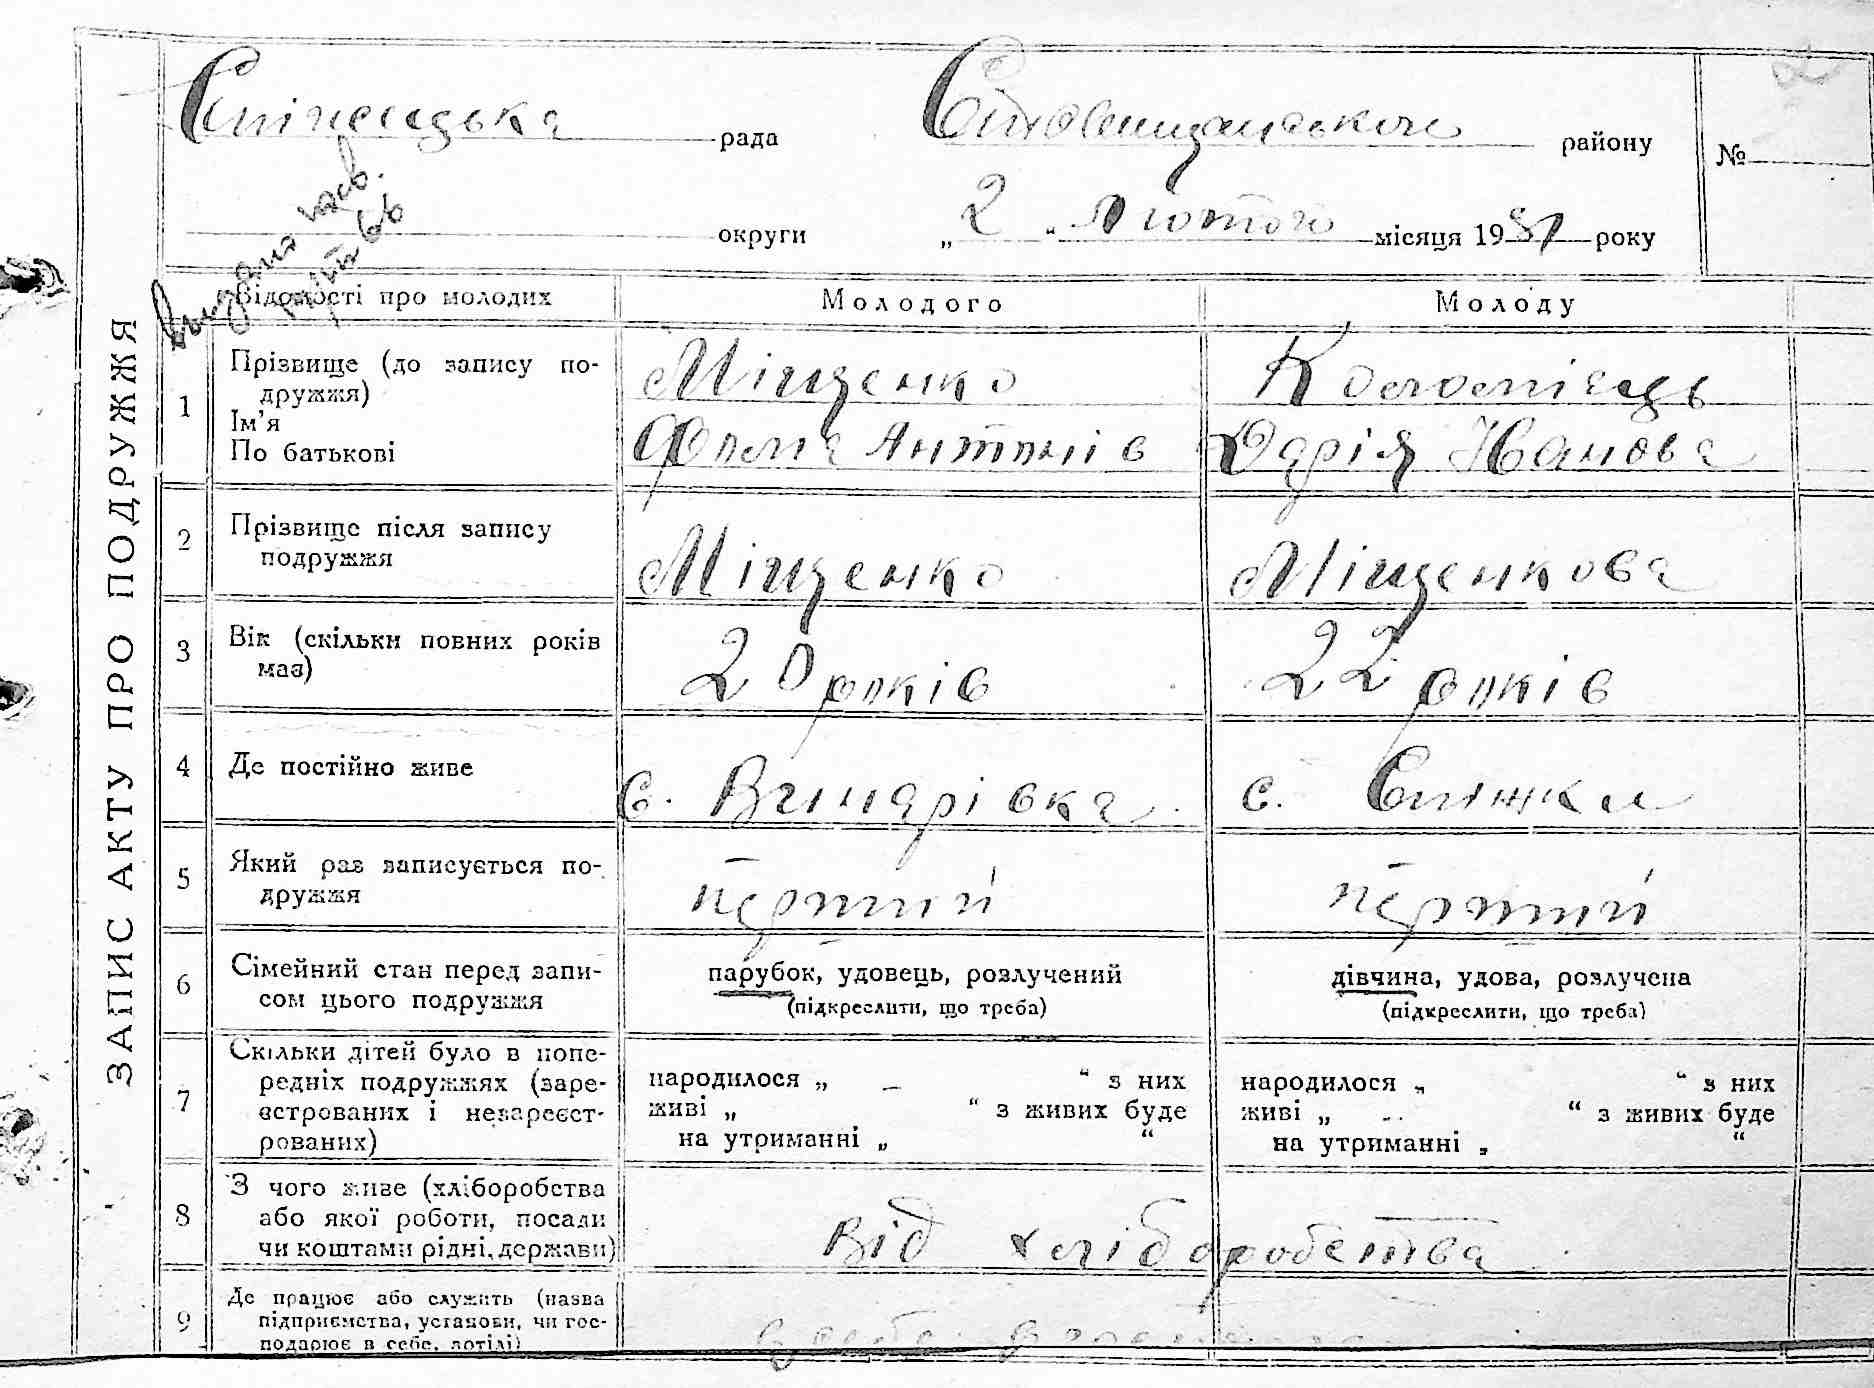 ЗАПИС АКТУ ПРО ПОДРУЖЖЯ
рада
району
№
2
округи „ 2 “ Лютого місяця 1931 року
Видана
Відомості про молодих Молодого Молоду
1 Прізвище (до запису по-
дружжя) Міщенко Коломієць
Ім'я
По батькові Фома Антонів Дарія Иванова
2 Прізвище після запису
подружжя Міщенко Міщенкова
3 Вік (скільки повних років
має) 20 років 22 років
4 Де постійно живе с. Винарівка с. Спіжки
5 Який раз записується по-
дружжя перший перший
6 Сімейний стан перед запи- парубок, удовець, розлучений дівчина, удова, розлучена
сом цього подружжя (підкреслити, що треба) (підкреслити, що треба)
7 Скільки дітей було в попе-
редніх подружжях (заре- народилося „ – “ з них народилося „ “ з них
єстрованих і незареєст- живі „ “ з живих буде живі „ “ з живих буде
рованих) на утриманні „ “ на утриманні „ “
8 З чого живе (хліборобства
або якої роботи, посади
чи коштами рідні, держави) Від хліборобства
9 Де працює або служить (назва
підприємства, установи, чи гос-
подарює в себе,